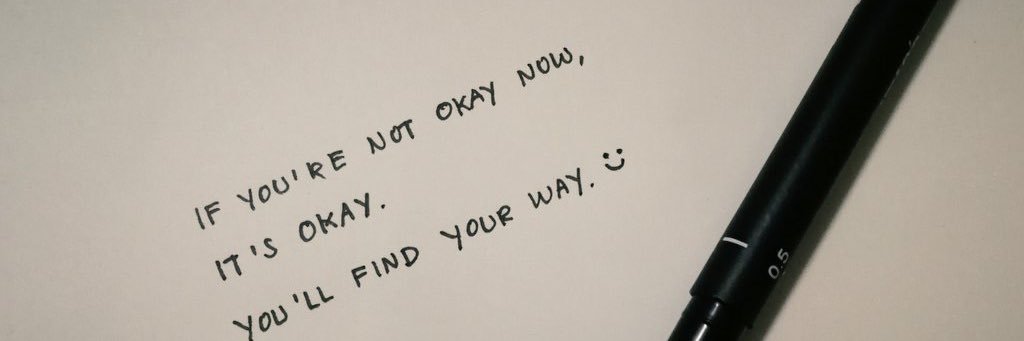 IF YOU'RE NOT OKAY NOW,
IT'S OKAY.
YOU'LL FIND YOUR WAY. :)
0.5